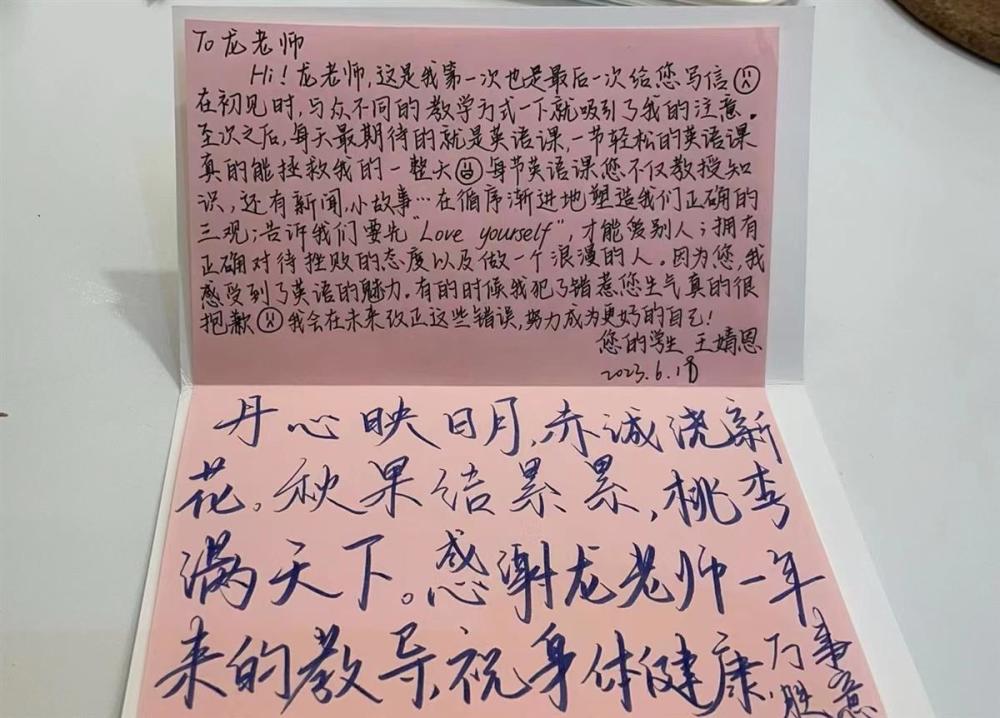 To 龙老师
Hi！龙老师，这是我第一次也是最后一次给您写信
在初见时，与众不同的教学方式一下就吸引了我的注意。
至次之后，每天最期待的就是英语课，一节轻松的英语课
真的能拯救我的一整天 每节英语课您不仅教授知
识，还有新闻，小故事…在循序渐进地塑造我们正确的
三观；告诉我们要先“Love yourself”，才能爱别人；拥有
正确对待挫败的态度以及做一个浪漫的人。因为您，我
感受到了英语的魅力。有的时候我犯了错惹您生气真的很
抱歉 我会在未来改正这些错误，努力成为更好的自己！
您的学生 王婧恩
2023.6.
丹心映日月，赤诚浇新
花。秋果结累累，桃李
满天下。感谢龙老师一年
来的教导，祝身体健康，万事
胜意